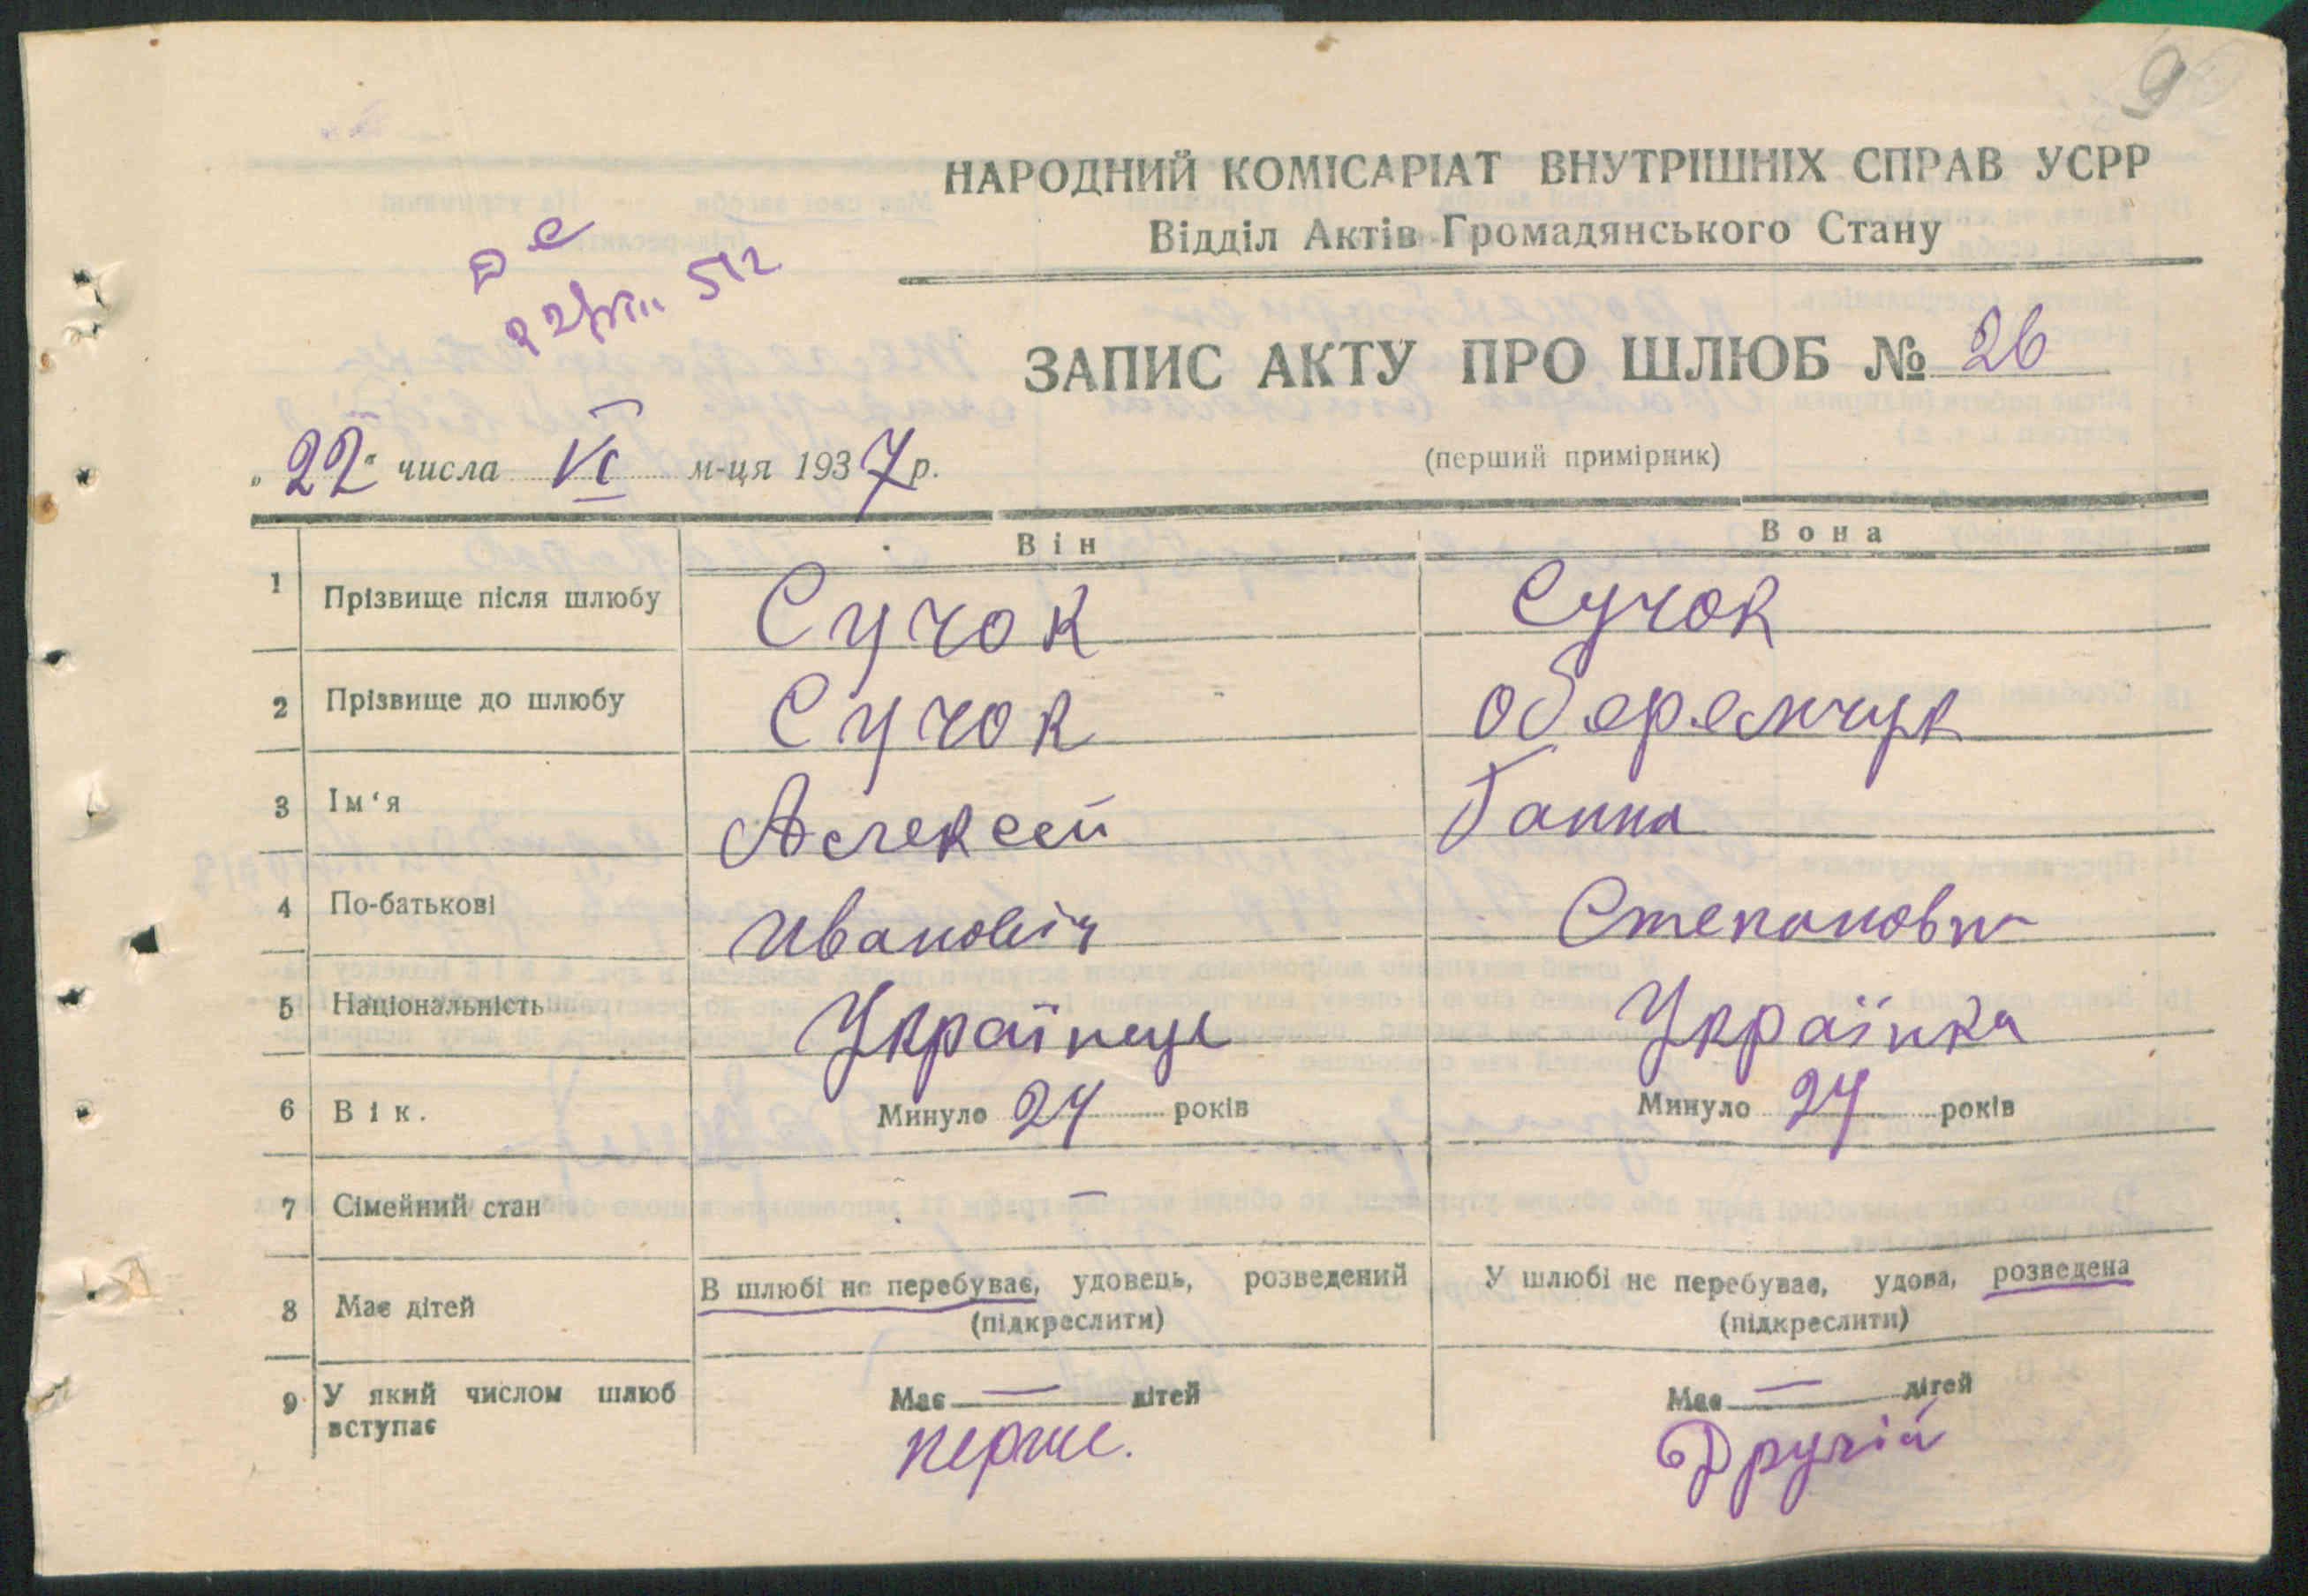 9
НАРОДНИЙ КОМІСАРІАТ ВНУТРІШНІХ СПРАВ УСРР
Відділ Актів Громадянського Стану
ЗАПИС АКТУ ПРО ШЛЮБ № 26
(перший примірник)
„22“ числа VI м-ця 1937 р.
Він Вона
1 Прізвище після шлюбу Сучок Сучок
2 Прізвище до шлюбу Сучок Оберемчук
3 Ім‘я Алексей Ганна
4 По-батькові Иванович Степановн
5 Національність Українець Українка
6 Вік. Минуло 24 років Минуло 24 років
7 Сімейний стан —
8 Має дітей В шлюбі не перебуває, удовець, розведений У шлюбі не перебуває, удова, розведена
(підкреслити) (підкреслити)
9 У який числом шлюб вступає Має — дітей Має — дітей
перше. Другій